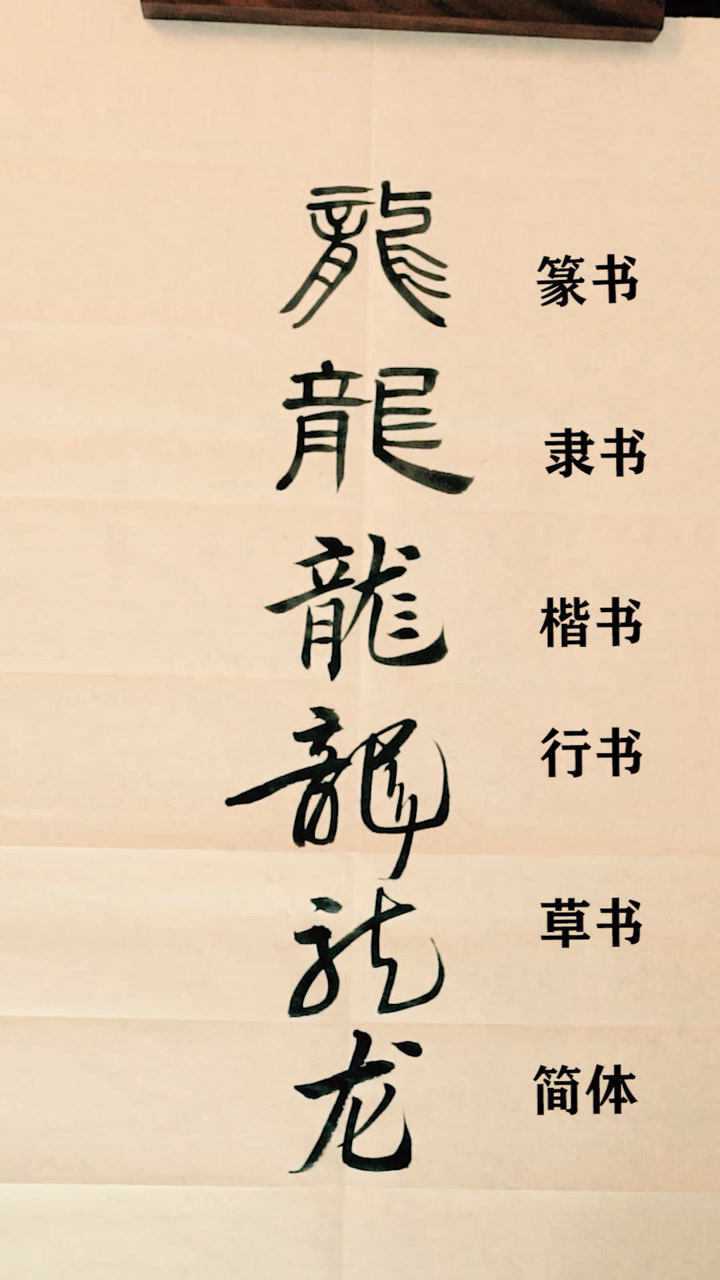 龍 篆书
龍 隶书
龍 楷书
龍 行书
龙 草书
龙 简体